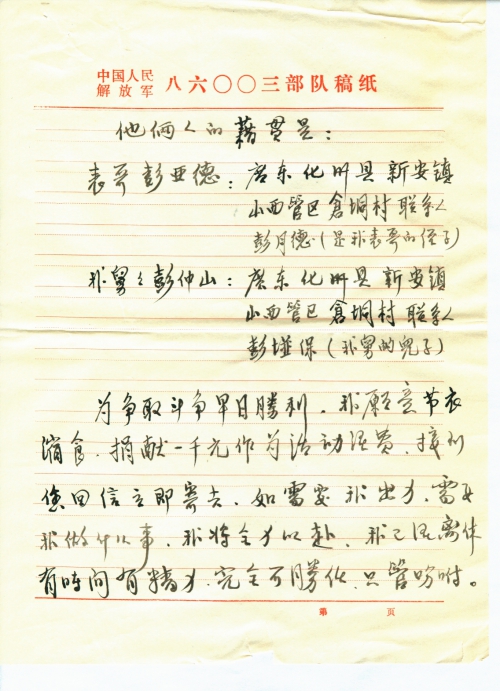 中国人民
解放军 八六〇〇三部队稿纸
他俩人的藉贯是：
表哥彭亚德：广东化州县新安镇
山西管区仓垌村联系人
彭月德（是我表哥的侄子）
我舅々彭仲山：广东化州县新安镇
山西管区仓垌村联系人
彭㙍保（我舅的儿子）
为争取斗争早日勝利，我願意节衣
消食，捐献一千元作为活动经费，接到
您回信立即寄去，如需要我出力，需要
我做什么事，我将全力以赴，我已经离休
有时间有精力，完全可勝任，只管吩咐。
第 页